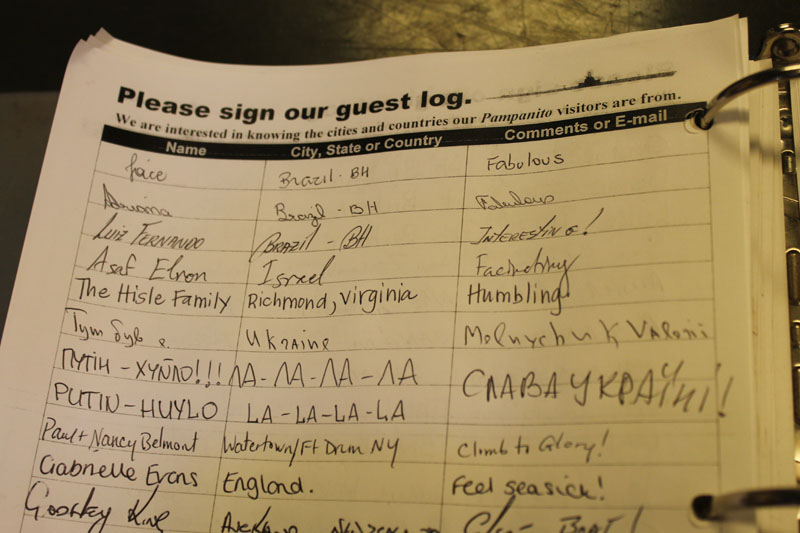 Please sign our guest log.
We are interested in knowing the cities and countries our Pampanito visitors are from.
Name City, State or Country Comments or E-mail
Joice Brazil - BH Fabulous
Brazil - BH Fabulous
Luiz Fernando Brazil - BH Interesting!
Asaf Elron Israel
The Hisle Family Richmond, Virginia Humbling
Тут був я. Ukraine Molnychuk Valerii
ПУТІН - ХУЙЛО!!! ЛА - ЛА - ЛА - ЛА СЛАВА УКРАЇНІ!
PUTIN - HUYLO LA - LA - LA - LA
Paul + Nancy Belmont Watertown/Ft Drum NY Climb to Glory!
Gabrielle Evans England. Feel seasick!
King